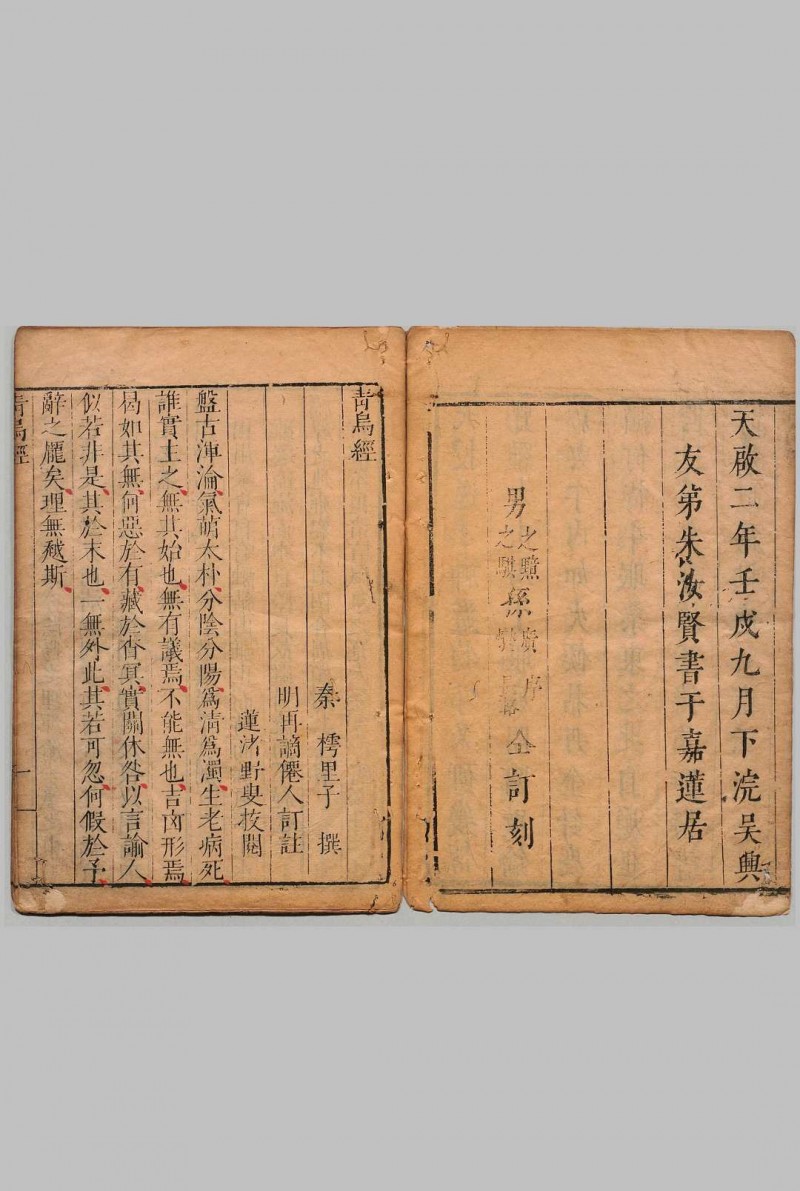 天啟二年壬戌九月下浣吳興
友第朱汝賢書于嘉蓮居
男之驥 孫 廣序
之騏 仝訂刻
青烏經
秦 樗里子 撰
明再謫僊人訂註
蓮渚野叟校閱
盤古渾淪氣萌太朴分陰分陽爲清爲濁生老病死
誰實主之無其始也無有議焉不能無也吉凶形焉
曷如其無何惡於有藏於杳冥實關休咎以言諭人
似若非是其於末也一無外此其若可忽何假於予
辭之龐矣理無越斯
青烏經
一